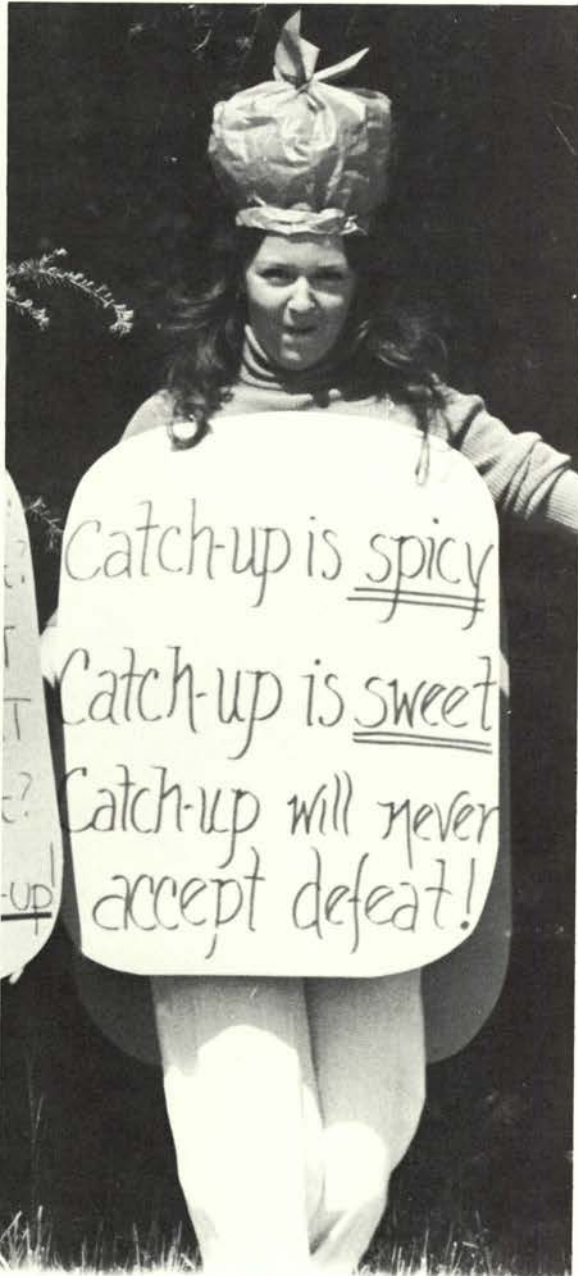 Catch-up is spicy
Catch-up is sweet
Catch-up will never
accept defeat!
?
T
T
?
-up!